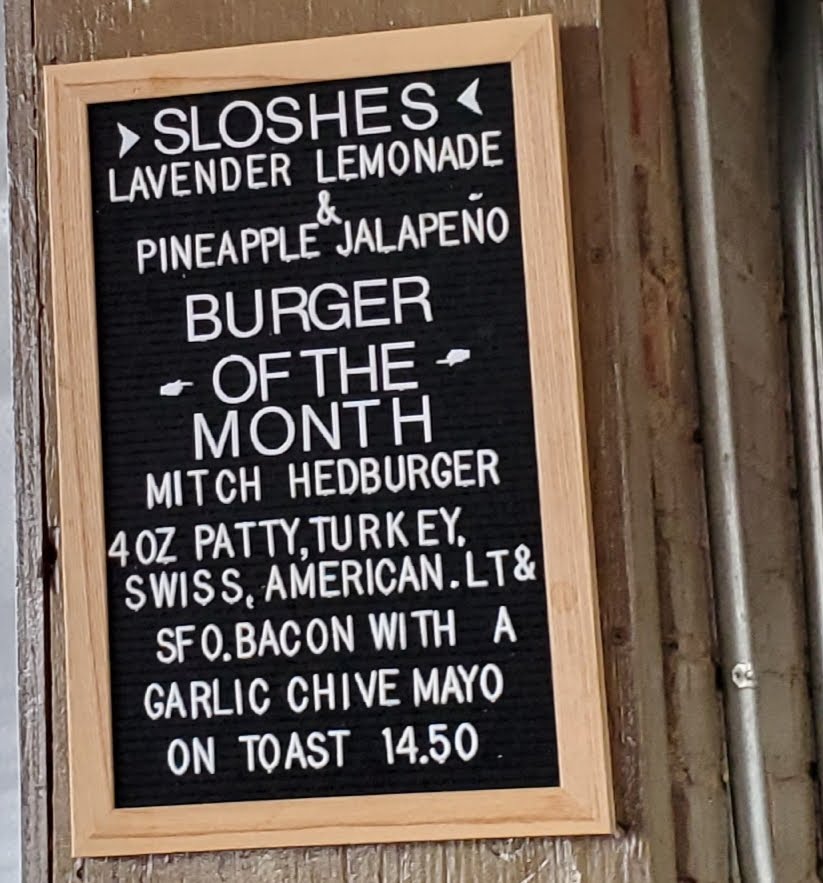 SLOSHES
LAVENDER LEMONADE
&
PINEAPPLE JALAPEÑO
BURGER
- OF THE -
MONTH
MITCH HEDBURGER
4 OZ PATTY, TURKEY,
SWISS, AMERICAN. LT&
SFO. BACON WITH A
GARLIC CHIVE MAYO
ON TOAST 14.50